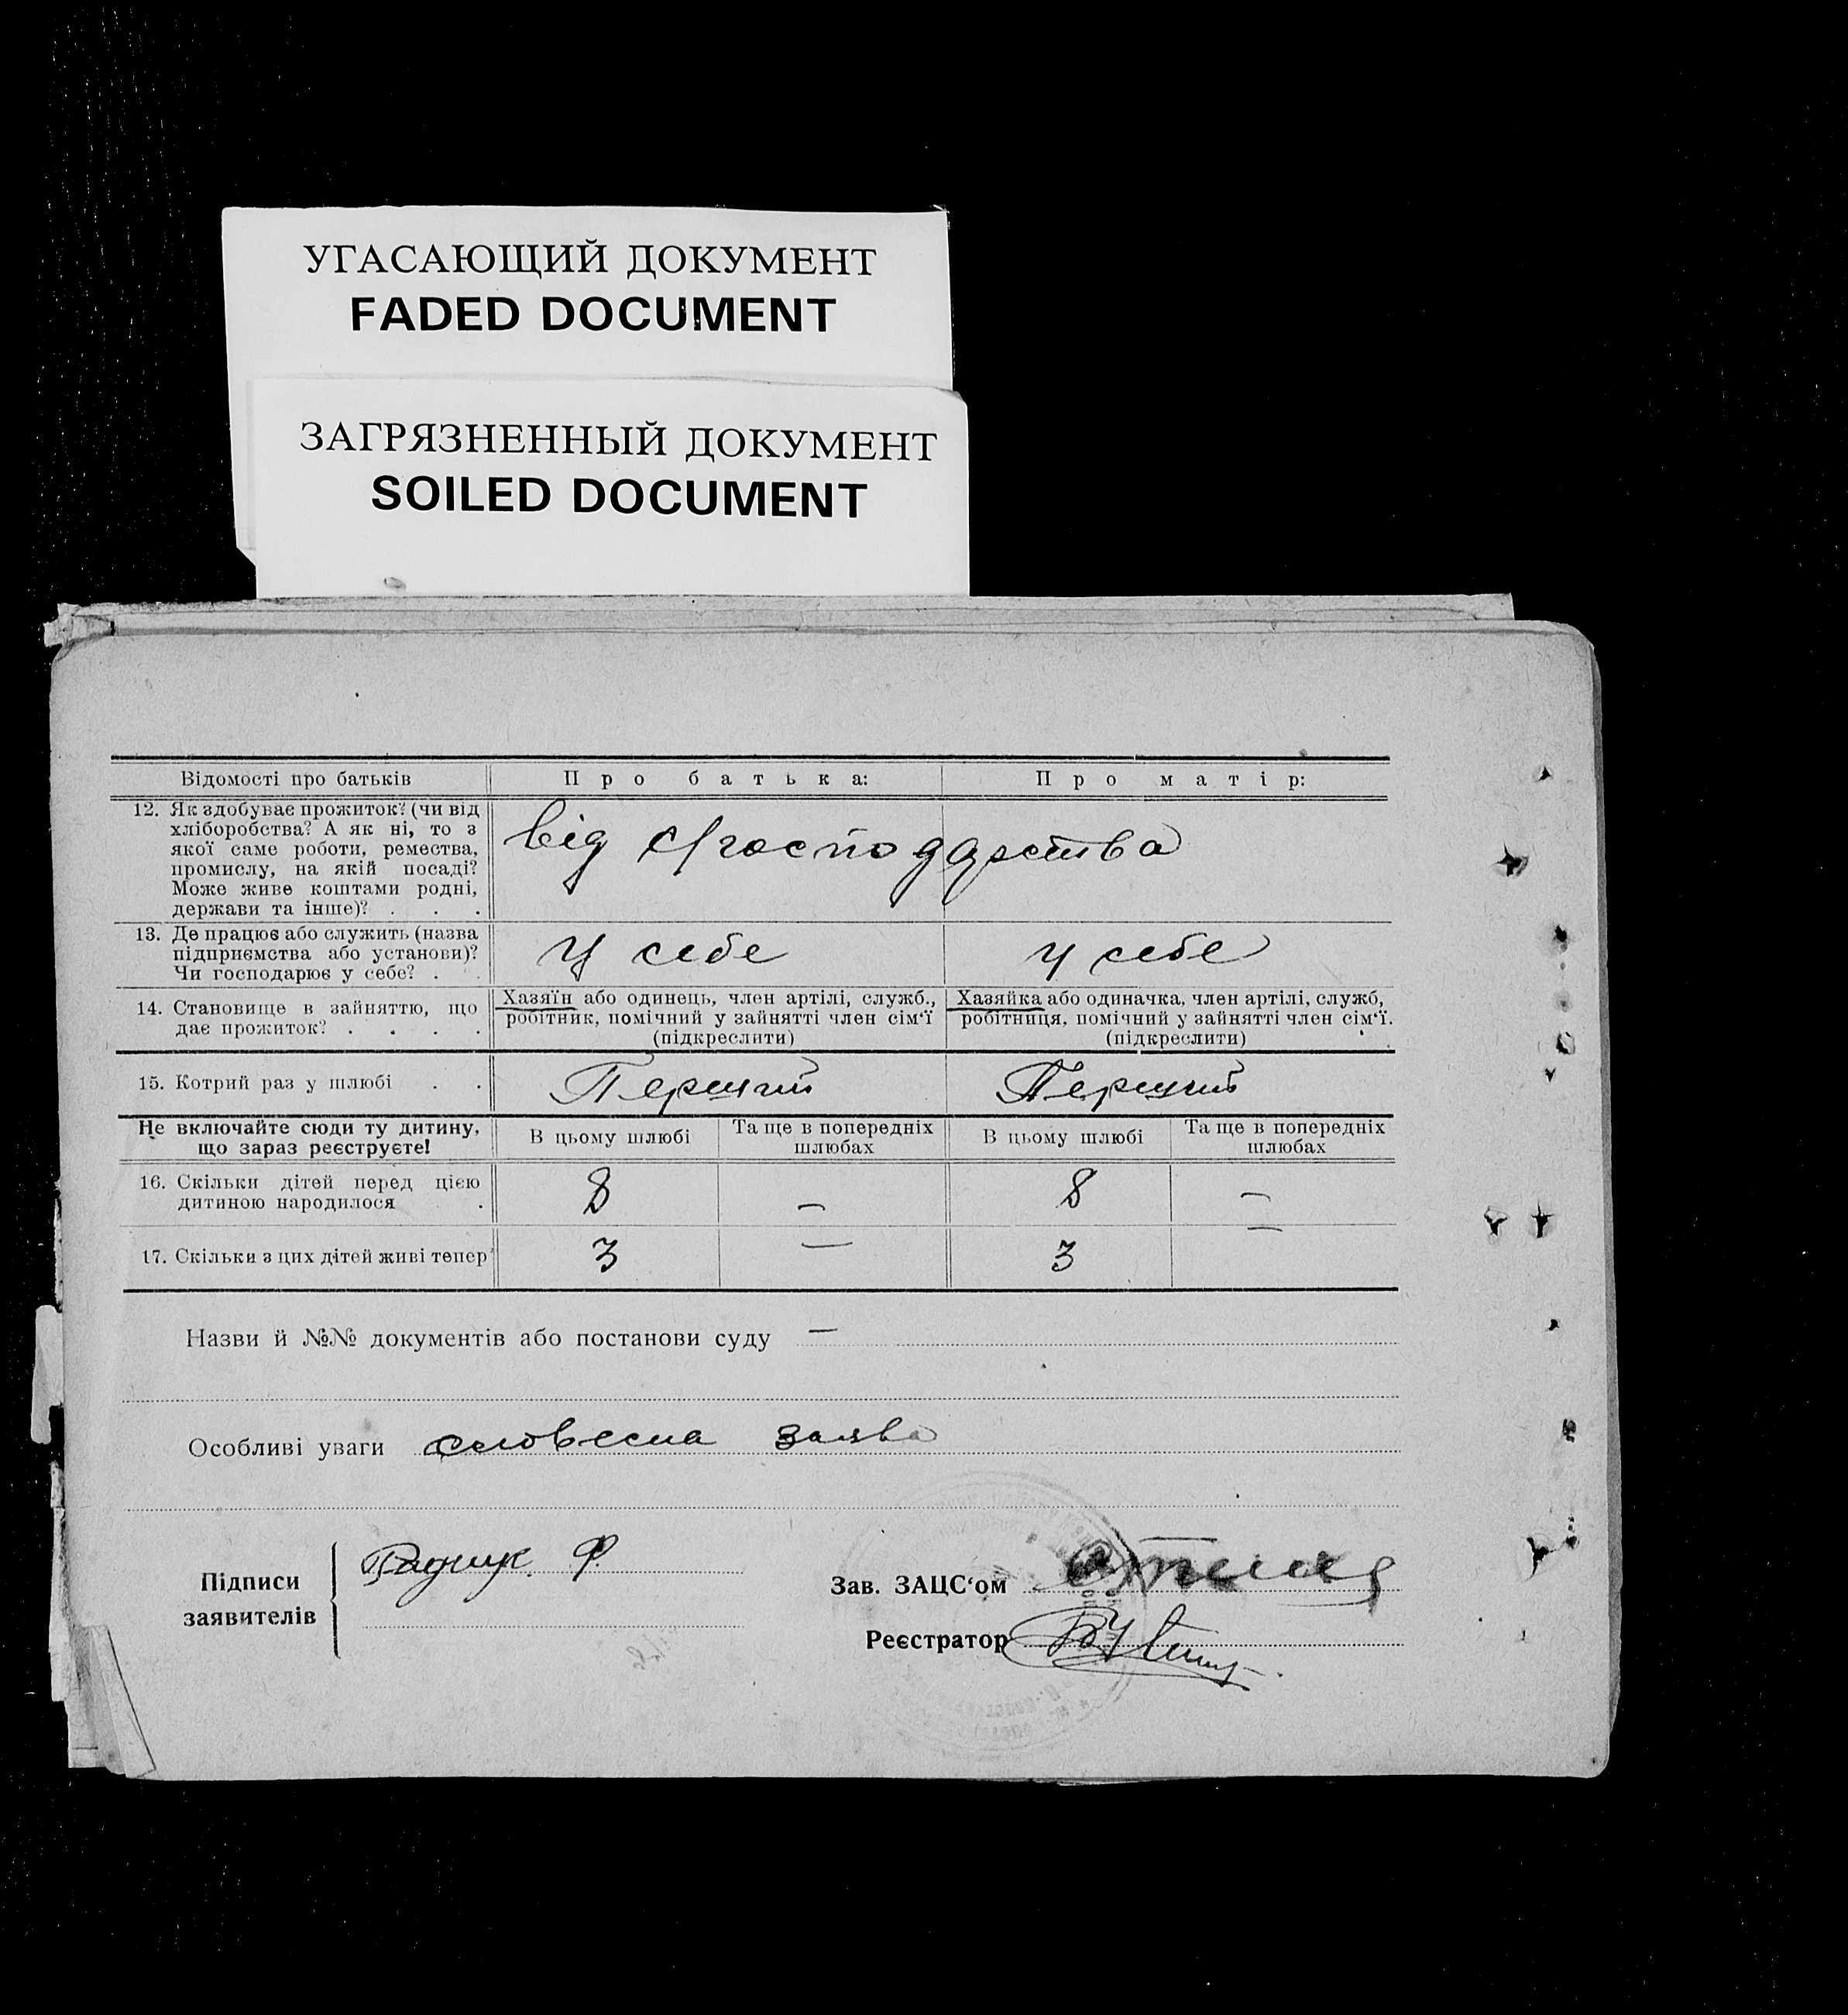 УГАСАЮЩИЙ ДОКУМЕНТ
FADED DOCUMENT
ЗАГРЯЗНЕННЫЙ ДОКУМЕНТ
SOILED DOCUMENT
Відомості про батьків Про батька: Про матір:
12. Як здобуває прожиток? (чи від
хліборобства? А як ні, то з
якої саме роботи, ремества,
промислу, на якій посаді?
Може живе коштами родні,
держави та інше)? . . .
від господарства
13. Де працює або служить (назва
підприємства або установи)?
Чи господарює у себе? . .
у себе у себе
14. Становище в зайняттю, що
дає прожиток? . . . .
Хазяїн або одинець, член артілі, служб.,
робітник, помічний у зайнятті член сім‘ї
(підкреслити)
Хазяйка або одиначка, член артілі, служб,
робітниця, помічний у зайнятті член сім‘ї.
(підкреслити)
15. Котрий раз у шлюбі . .
Не включайте сюди ту дитину,
що зараз реєструєте!
В цьому шлюбі
Та ще в попередніх
шлюбах
В цьому шлюбі
Та ще в попередніх
шлюбах
16. Скільки дітей перед цією
дитиною народилося .
8 — 8 —
17. Скільки з цих дітей живі тепер
3 — 3 —
Назви й №№ документів або постанови суду —
Особливі уваги словесна заява
Підписи
заявителів
Ф.
Зав. ЗАЦС‘ом
Реєстратор